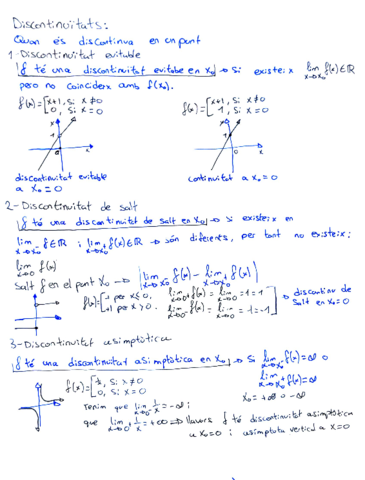 Discontinuïtats:
Quan és discontinua en un punt
1-Discontinuitat evitable
f té una discontinuitat evitable en x₀ → Si existeix lim x→x₀ f(x) ∈ ℝ
pero no coincideix amb f(x₀).
f(x)=[x+1, si x≠0 f(x)=[x+1, si x≠0
0, si x=0
discontinuitat evitable continuitat
a x₀=0 a x₀=0
2-Discontinuitat de salt
f té una discontinuitat de salt en x₀ → si existeix en
lim x→x₀⁻ f ∈ ℝ i lim x→x₀⁺ f(x) ∈ ℝ → són diferents, per tant no existeix:
lim x→0 f(x)
Salt f en el punt x₀ → | lim x→x₀⁻ f(x) - lim x→x₀⁺ f(x) |
f(x)= per x≤0, lim f(x) = lim 1 = 1
1 per x>0. lim f(x) = lim = -1
→ discontinu de
salt en x₀=0
3-Discontinuïtat asimptòtica
f té una discontinuitat asimptòtica en x₀ → Si lim x→x₀⁻ f(x)=∞ o
lim x→x₀⁺ f(x)=∞
f(x)=[1/x, si x≠0
0, si x=0
x₀ = +∞ o -∞
Tenim que lim x→0⁻ 1/x = -∞ i
que lim x→0⁺ 1/x = +∞ ⇒ llavors f té discontinuitat asimptòtica
a x₀=0 i asimptota vertical a x=0